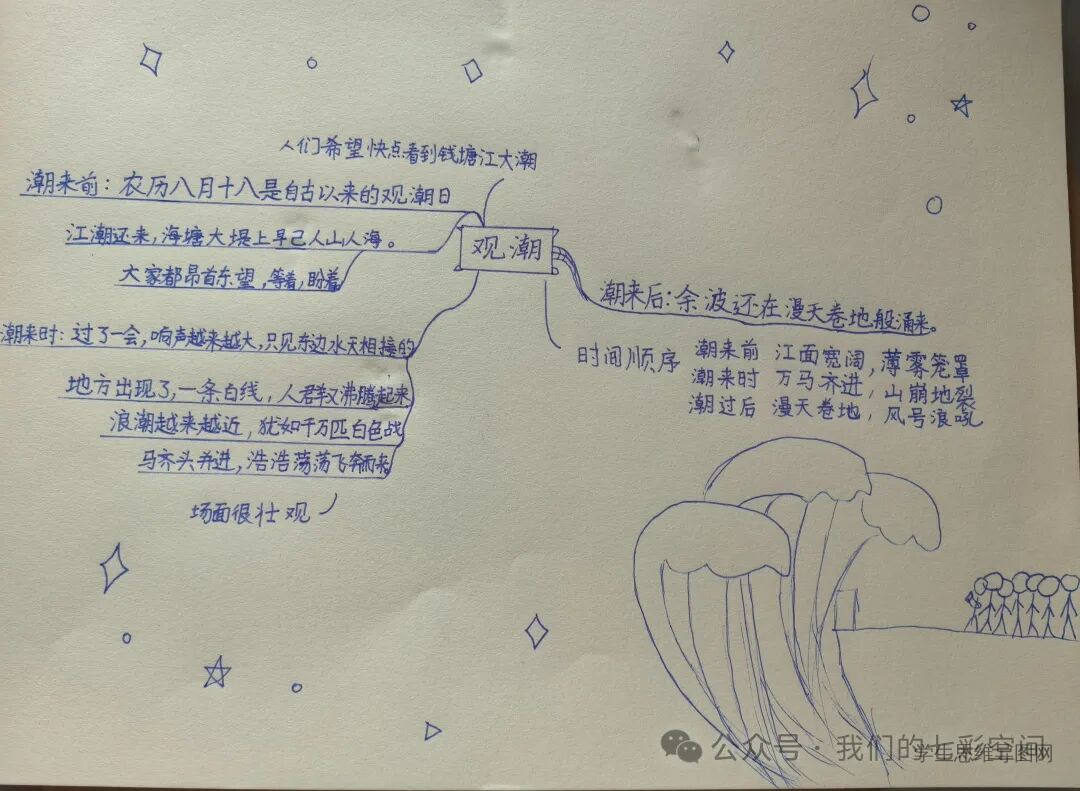 人们希望快点看到钱塘江大潮
潮来前：农历八月十八是自古以来的观潮日
江潮还来，海塘大堤上早已人山人海。
大家都昂首东望，等着，盼着
观潮
潮来时：过了一会，响声越来越大，只见东边水天相接的
地方出现了，一条白线，人群又沸腾起来
浪潮越来越近，犹如千万匹白色战
马齐头并进，浩浩荡荡飞奔而来
场面很壮观
潮来后：余波还在漫天卷地般涌来。
时间顺序
潮来前 江面宽阔，薄雾笼罩
潮来时 万马齐进，山崩地裂
潮过后 漫天卷地，风号浪吼
公众号·我们的七彩空间
学生思维导图网